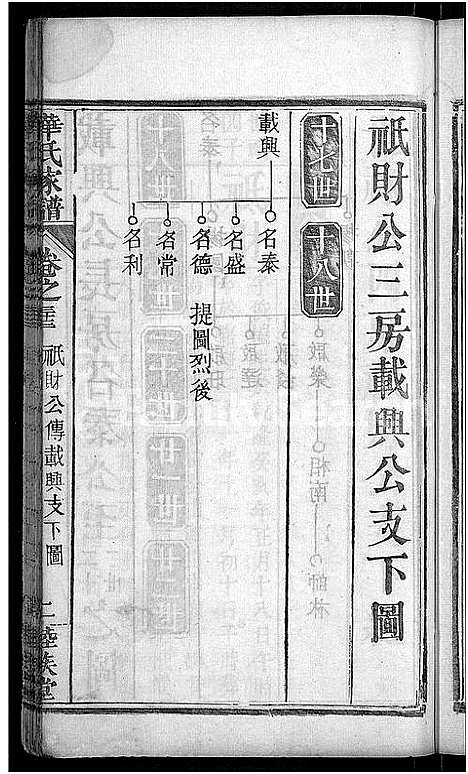 祇財公三房載興公支下圖
十七世
十八世
載興
名泰
名盛
名德
名常
名利
提圖烈後
華氏家譜
卷之三
祇財公傳載興支下圖
二
睦族堂